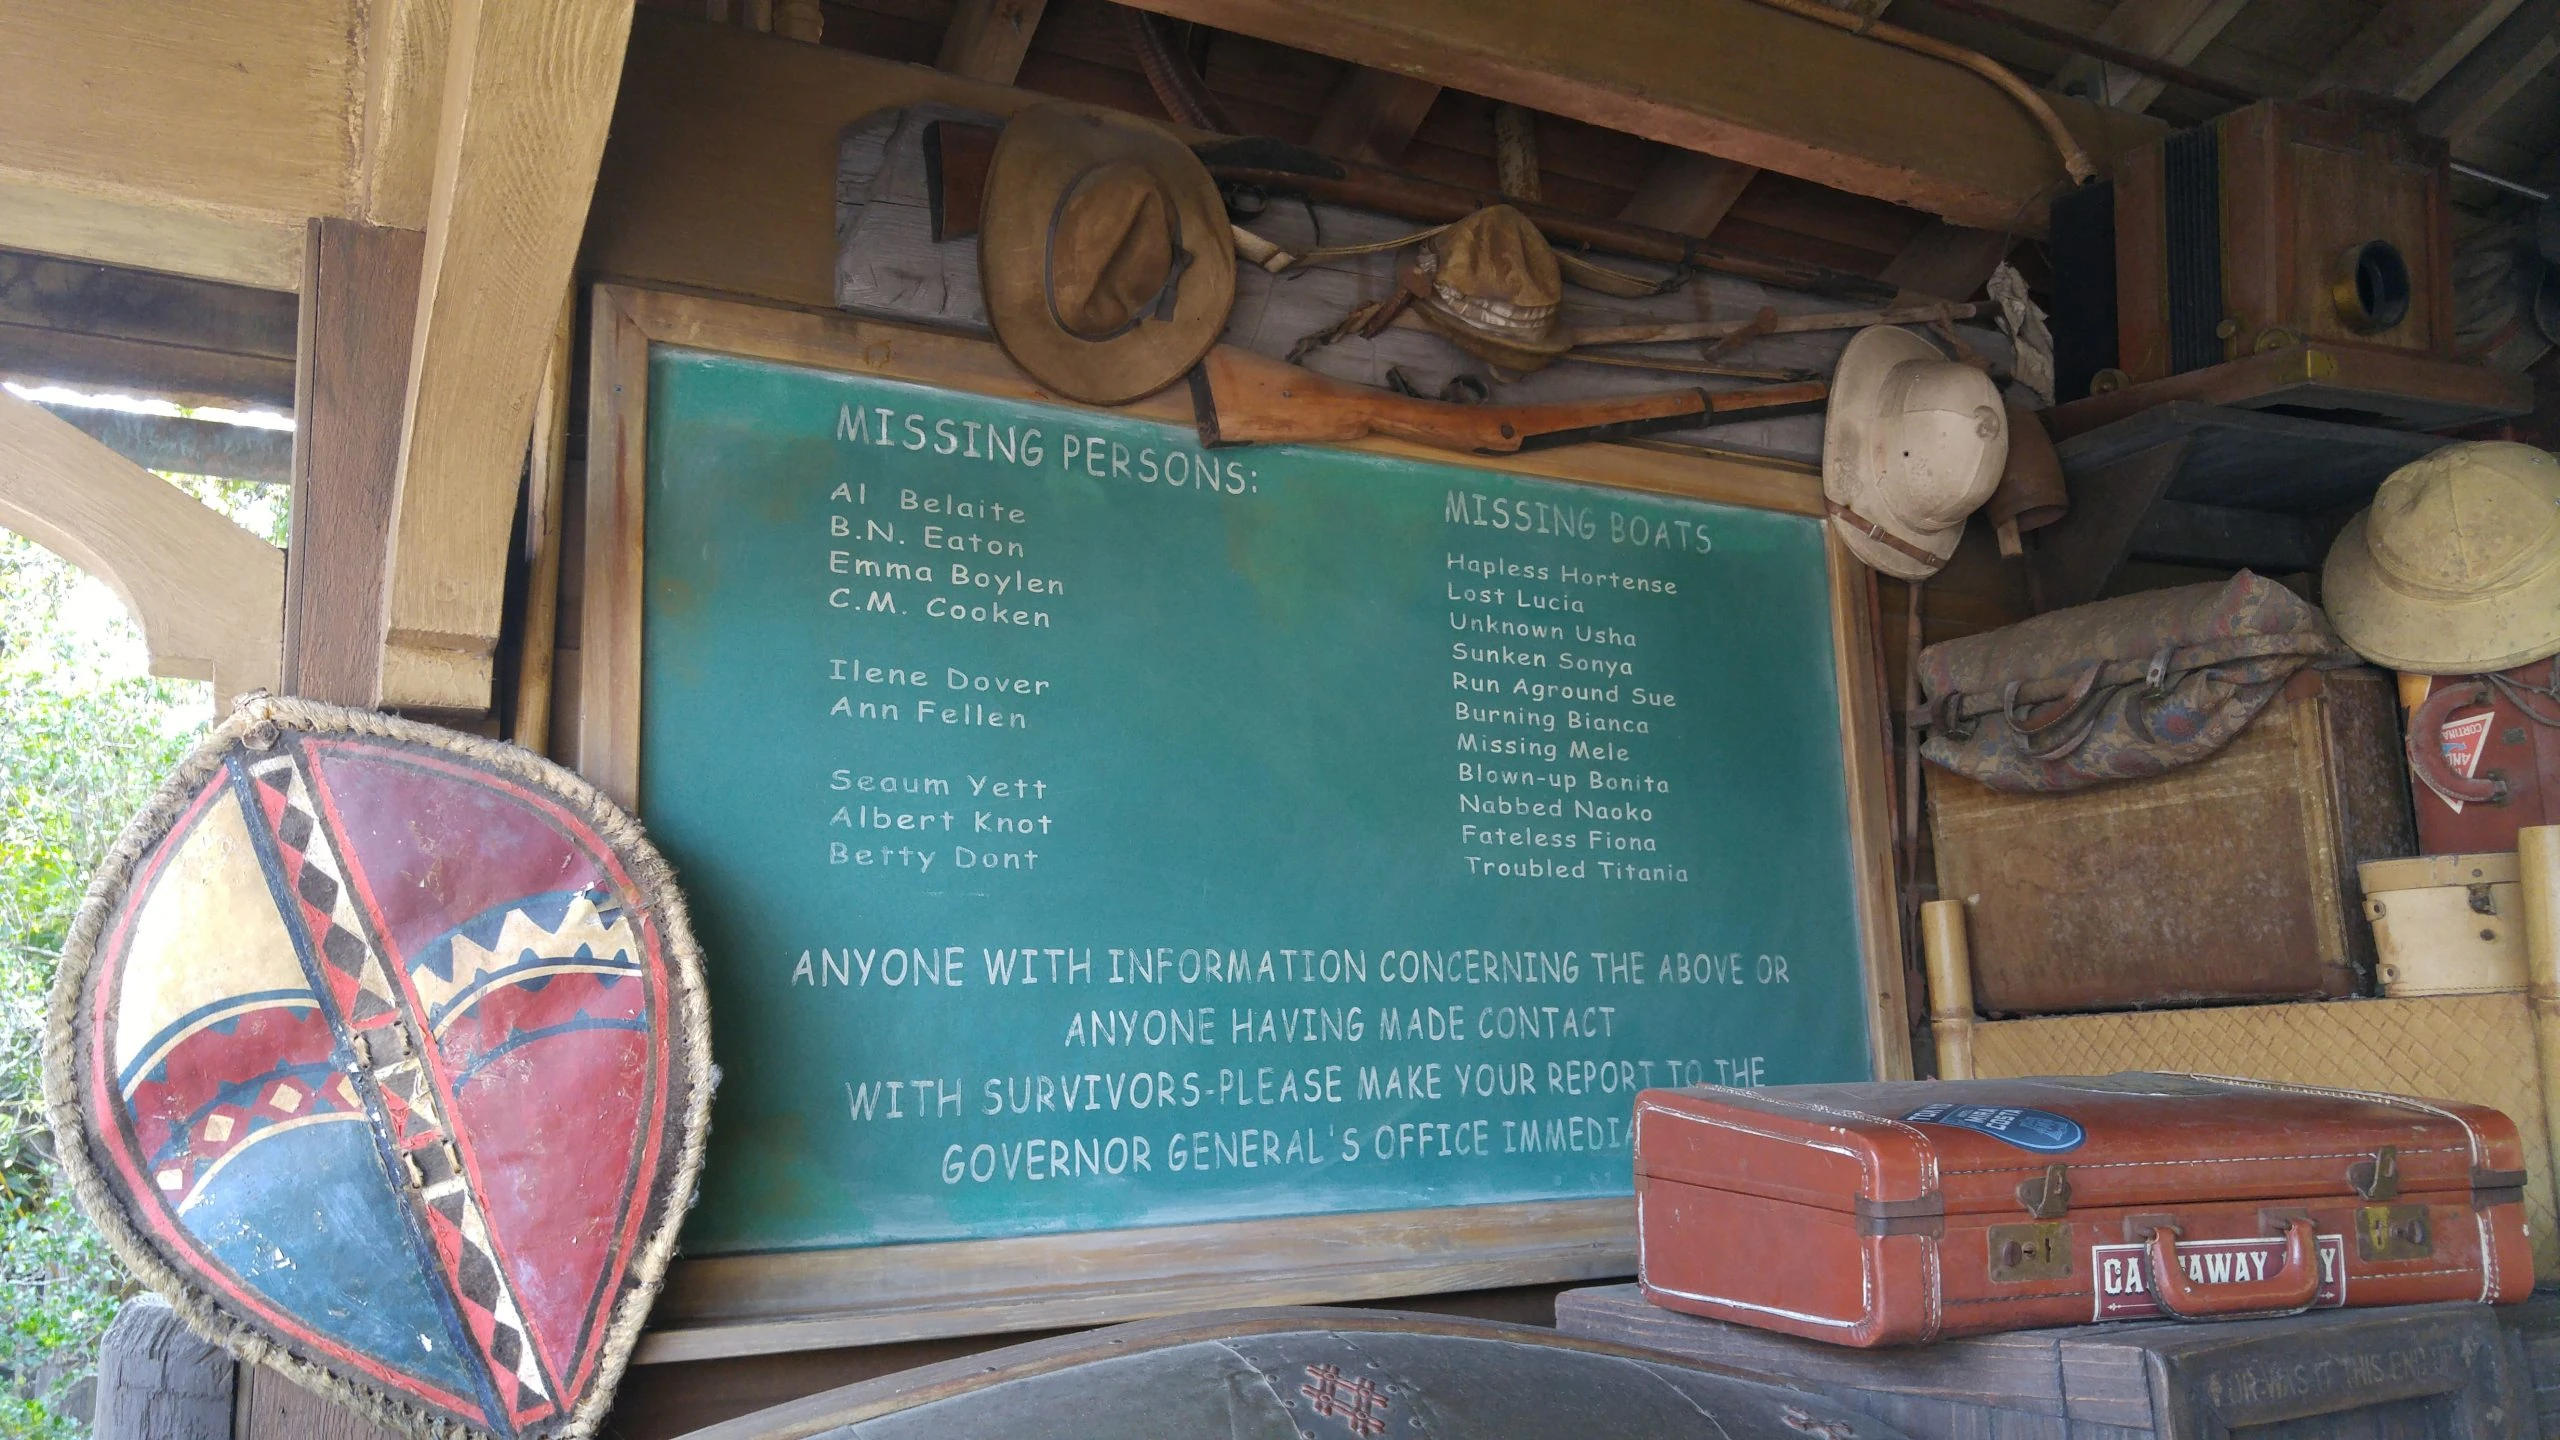 MISSING PERSONS:
Al Belaite
B.N. Eaton
Emma Boylen
C.M. Cooken
Ilene Dover
Ann Fellen
Seaum Yett
Albert Knot
Betty Dont
MISSING BOATS
Hapless Hortense
Lost Lucia
Unknown Usha
Sunken Sonya
Run Aground Sue
Burning Bianca
Missing Mele
Blown-up Bonita
Nabbed Naoko
Fateless Fiona
Troubled Titania
ANYONE WITH INFORMATION CONCERNING THE ABOVE OR
ANYONE HAVING MADE CONTACT
WITH SURVIVORS-PLEASE MAKE YOUR REPORT TO THE
GOVERNOR GENERAL'S OFFICE IMMEDIA
CORTINA
COSTA
OR WAS IT THIS END UP